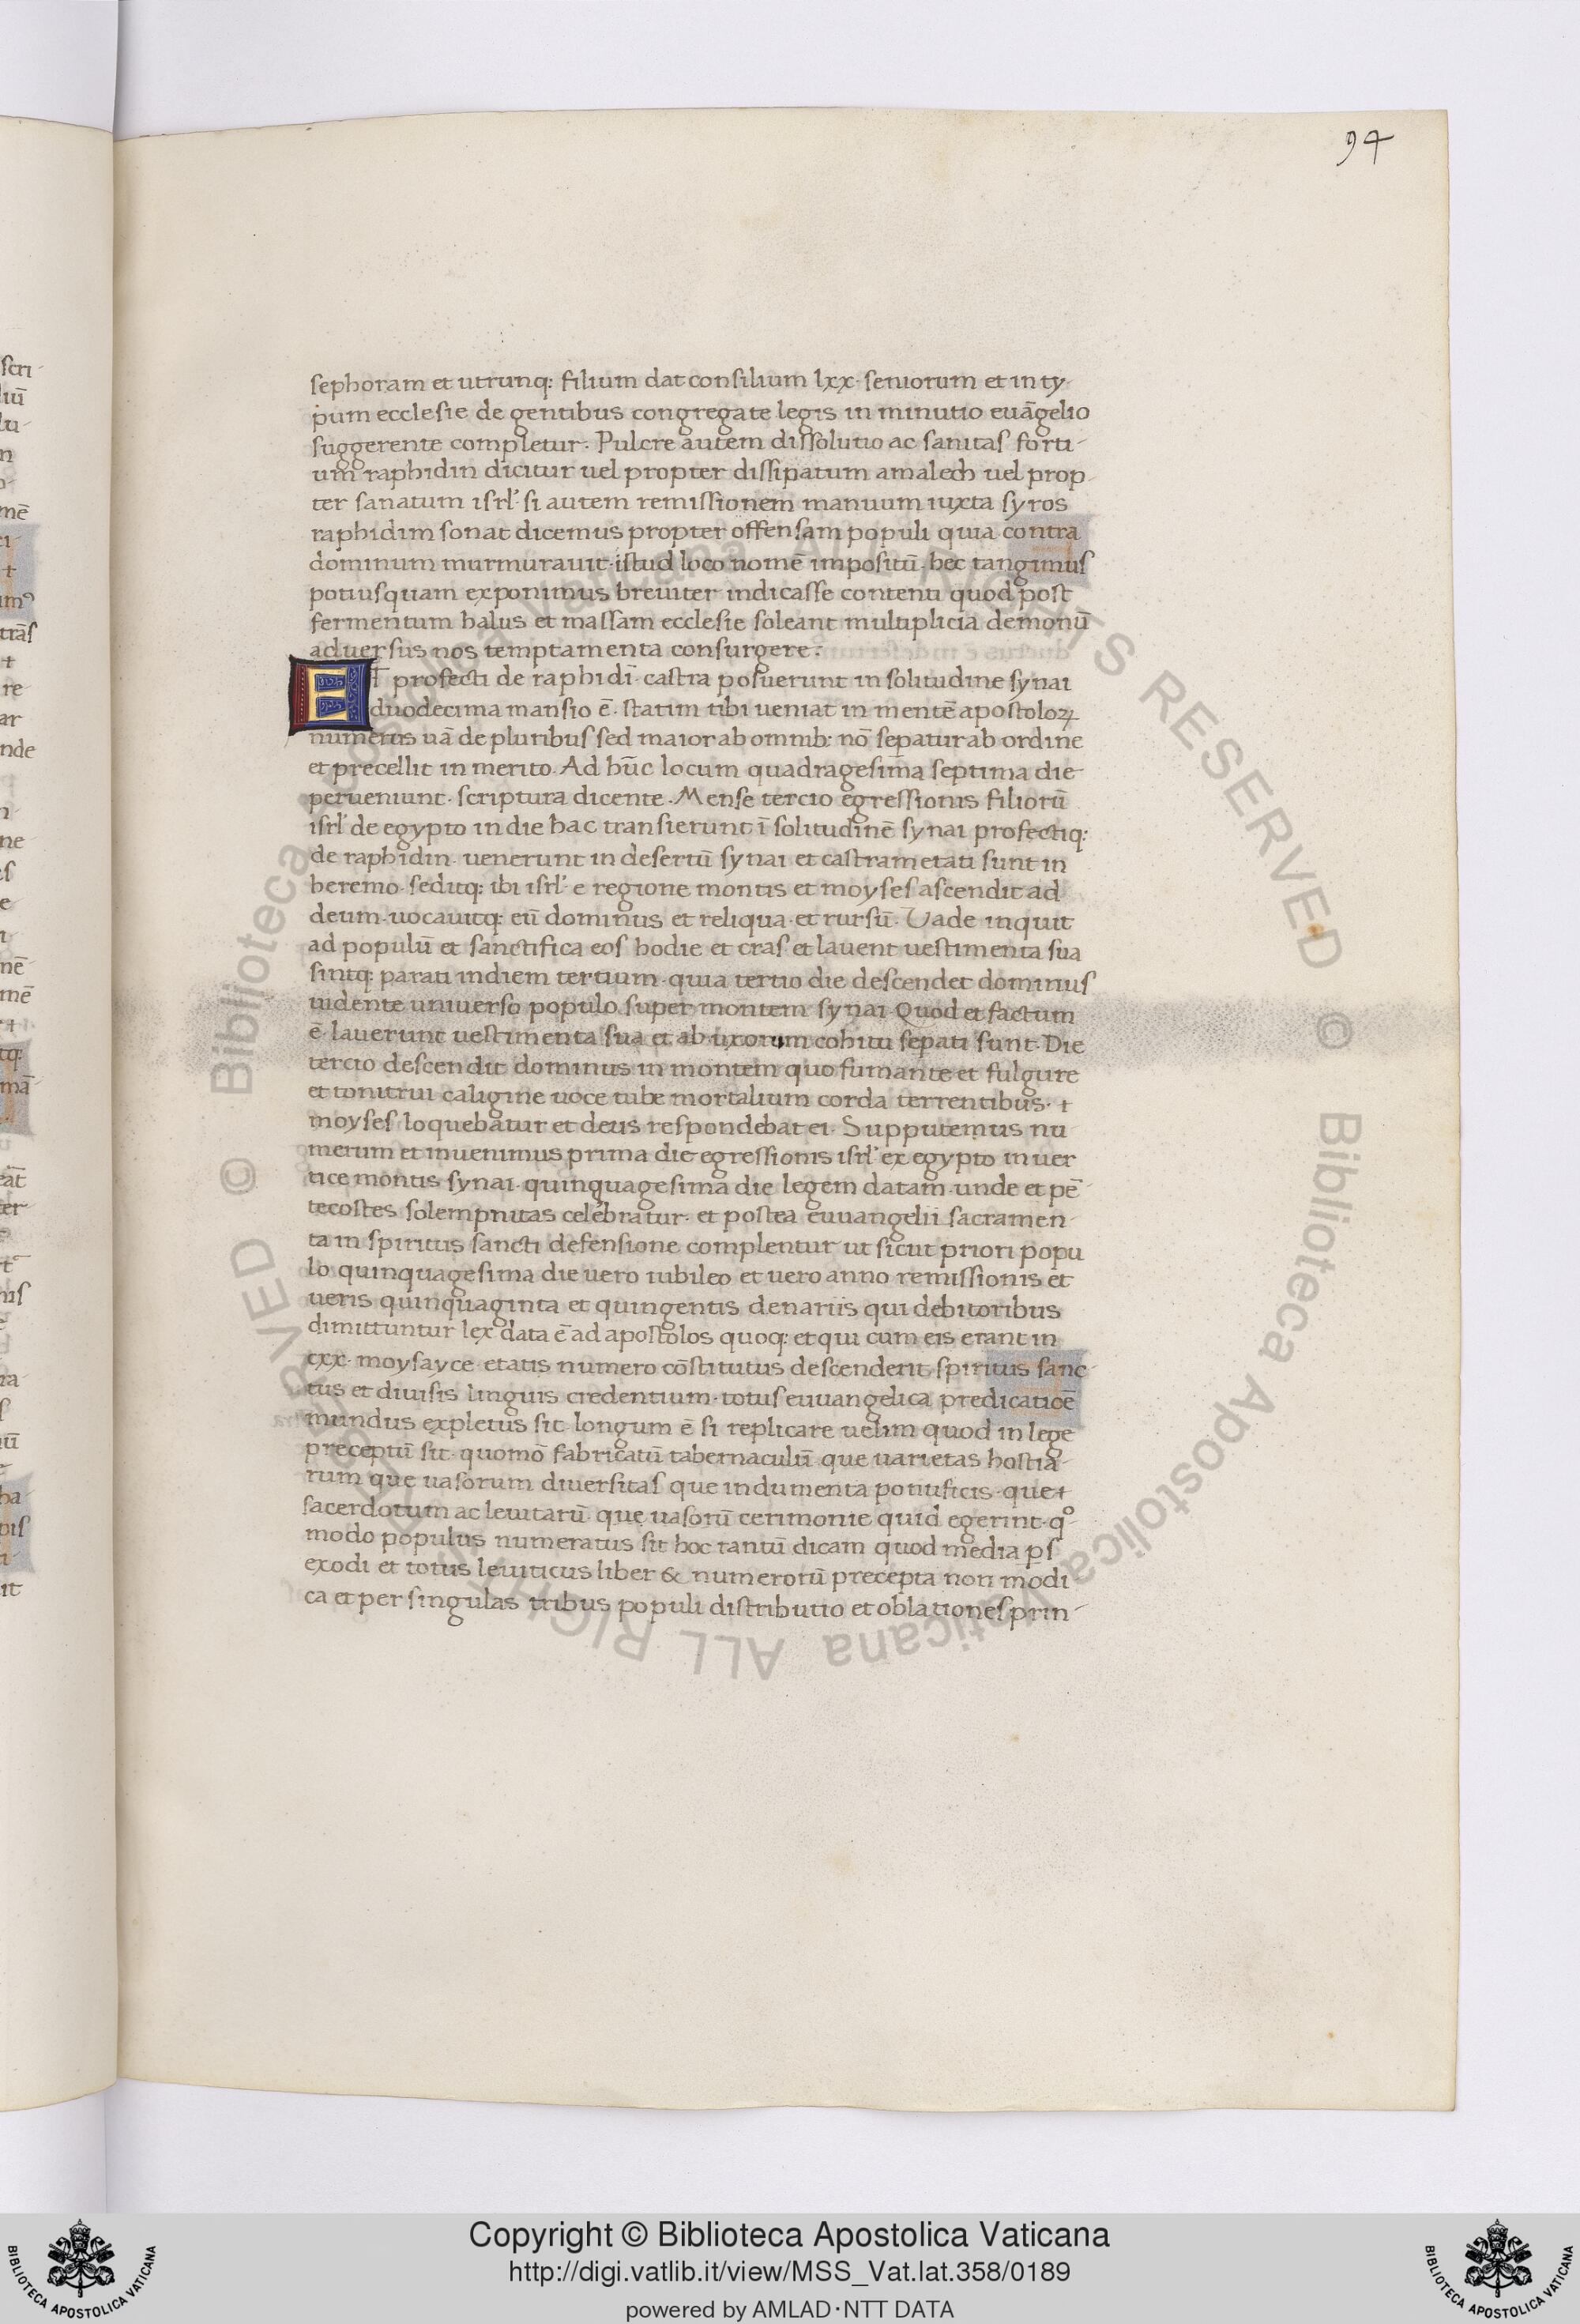 94
sephoram et utrunq: filium dat consilium lxx· seniorum et in ty-
pum ecclesie de gentibus congregate legis in minutio euāgelio
suggerente completur· Pulcre autem dissolutio ac sanitas forti-
um raphidin dicitur uel propter dissipatum amalech uel prop-
ter sanatum isrl̓· si autem remissionem manuum iuxta syros
raphidim sonat dicemus propter offensam populi quia contra
dominum murmurauit· istud loco nomē impositū· hec tangimus
potiusquam exponimus breuiter indicasse contenti quod post
fermentum halus et massam ecclesie soleant multiplicia demonū
aduersus nos temptamenta consurgere·
ET profecti de raphidī· castra posuerunt in solitudine synai
duodecima mansio ē· statim tibi ueniat in mentē apostoloꝝ
numerus uā de pluribus sed maior ab omnib: nō seꝑatur ab ordine
et precellit in merito· Ad hūc locum quadragesima septima die
perueniunt· scriptura dicente· Mense tercio egressionis filiorū
isrl̓ de egypto in die hac transierunt ī solitudinē synai profectiq:
de raphidin· uenerunt in desertū synai et castrametati sunt in
heremo· seditq: ibi isrl̓ e regione montis et moyses ascendit ad
deum· uocauitq: eū dominus et reliqua· et rursū· Uade inquit
ad populū et sanctifica eos hodie et cras et lauent uestimenta sua
sintq: parati in diem tertium· quia tertio die descendet dominus
uidente uniuerso populo super montem synai· Quod et factum
ē· lauerunt uestimenta sua et ab uxorum cohitu seꝑati sunt· Die
tercio descendit dominus in montem quo fumante et fulgure
et tonitrui caligine uoce tube mortalium corda terrentibus· ⁊
moyses loquebatur et deus respondebat ei· Supputemus nu
merum et inuenimus prima die egressionis isrl̓ ex egypto in uer
tice montis synai· quinquagesima die legem datam· unde et pē-
tecostes solempnitas celebratur· et postea euuangelii sacramen-
ta in spiritus sancti defensione complentur ut sicut priori popu
lo quinquagesima die uero iubileo et uero anno remissionis et
ueris quinquaginta et quingentis denariis qui debitoribus
dimittuntur lex data ē ad apostolos quoq: et qui cum eis erant in
cxx· moysayce etatis numero cōstitutus descenderit spiritus sanc-
tus et diuisis linguis credentium· totus euuangelica predicatiōe
mundus expletus sit· longum ē si replicare uelim quod in lege
preceptū sit· quomō fabricatū tabernaculū que uarietas hostia-
rum que uasorum diuersitas que indumenta pontificis· que ⁊
sacerdotum ac leuitarū· que uasorū cerimonie quid egerint· qº
modo populus numeratus sit hoc tantū dicam quod media ꝑs
exodi et totus leuiticus liber & numerorū precepta non modi
ca et per singulas tribus populi distributio et oblationes prin-
Copyright © Biblioteca Apostolica Vaticana
http://digi.vatlib.it/view/MSS_Vat.lat.358/0189
powered by AMLAD·NTT DATA